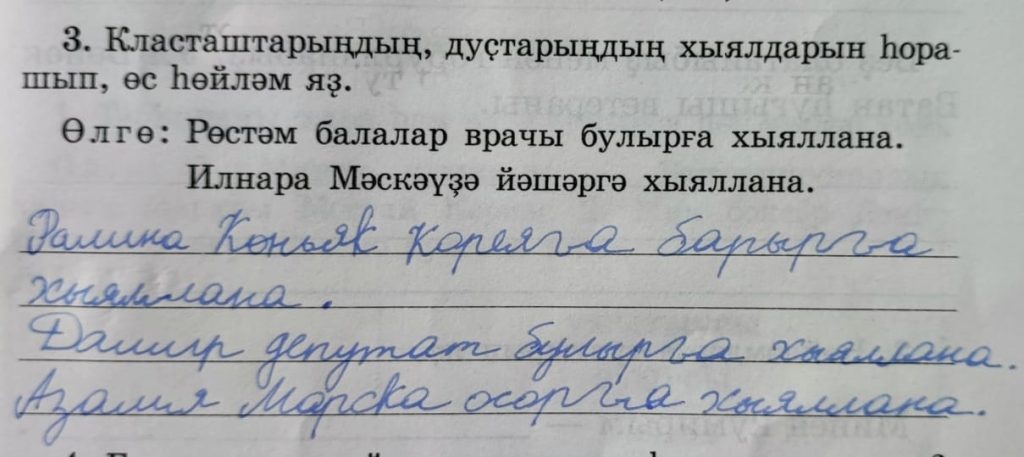 3. Класташтарыңдың, дуҫтарыңдың хыялдарын һора-
шып, өс һөйләм яҙ.
Өлгө: Рөстәм балалар врачы булырға хыяллана.
Илнара Мәскәүҙә йәшәргә хыяллана.
Ралина Көньяк Кореяға барырға
хыяллана.
Дамир депутат булырға хыяллана.
Азалия Марска осорға хыяллана.